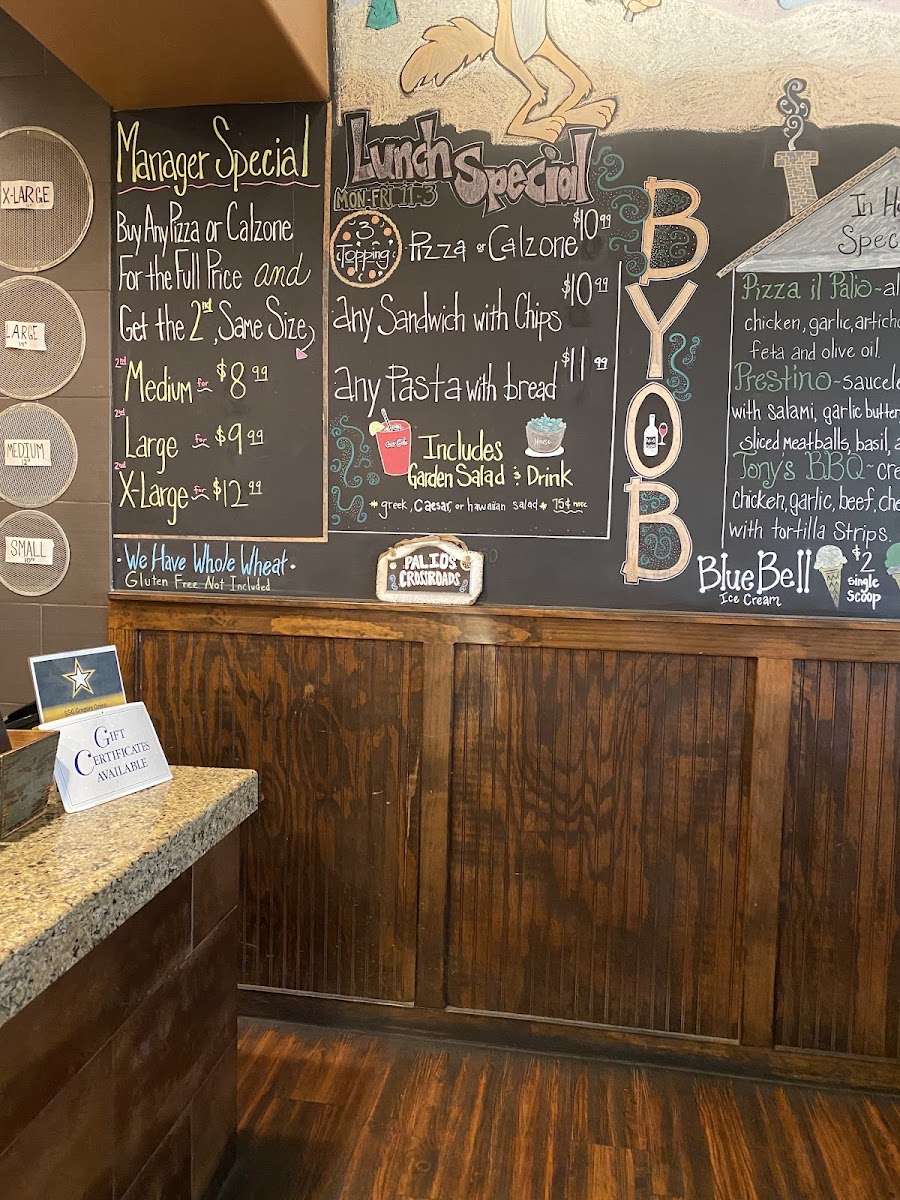 X-LARGE
LARGE
MEDIUM
SMALL
Manager Special
Buy Any Pizza or Calzone
For the Full Price and
Get the 2nd, Same Size,
2nd Medium for $8 99
2nd Large for $9 99
2nd X-Large for $12 99
• We Have Whole Wheat •
Gluten Free Not Included
Lunch Special
MON-FRI 11-3
3 Topping Pizza or Calzone $10 99
any Sandwich with Chips $10 99
any Pasta with bread $11 99
Coca-Cola
House
Includes
Garden Salad & Drink
* greek, Caesar, or hawaiian salad * 75¢ more
PALIO'S
CROSSROADS
BYOB
In
Pizza il Palio -
chicken, garlic,
feta and olive oil.
Prestino -
with salami, garlic
sliced meatballs, basil,
Tony's BBQ -
chicken, garlic, beef,
with tortilla Strips.
Blue Bell
Ice Cream
$2
Single
Scoop
SSG Gregory
GIFT
CERTIFICATES
AVAILABLE